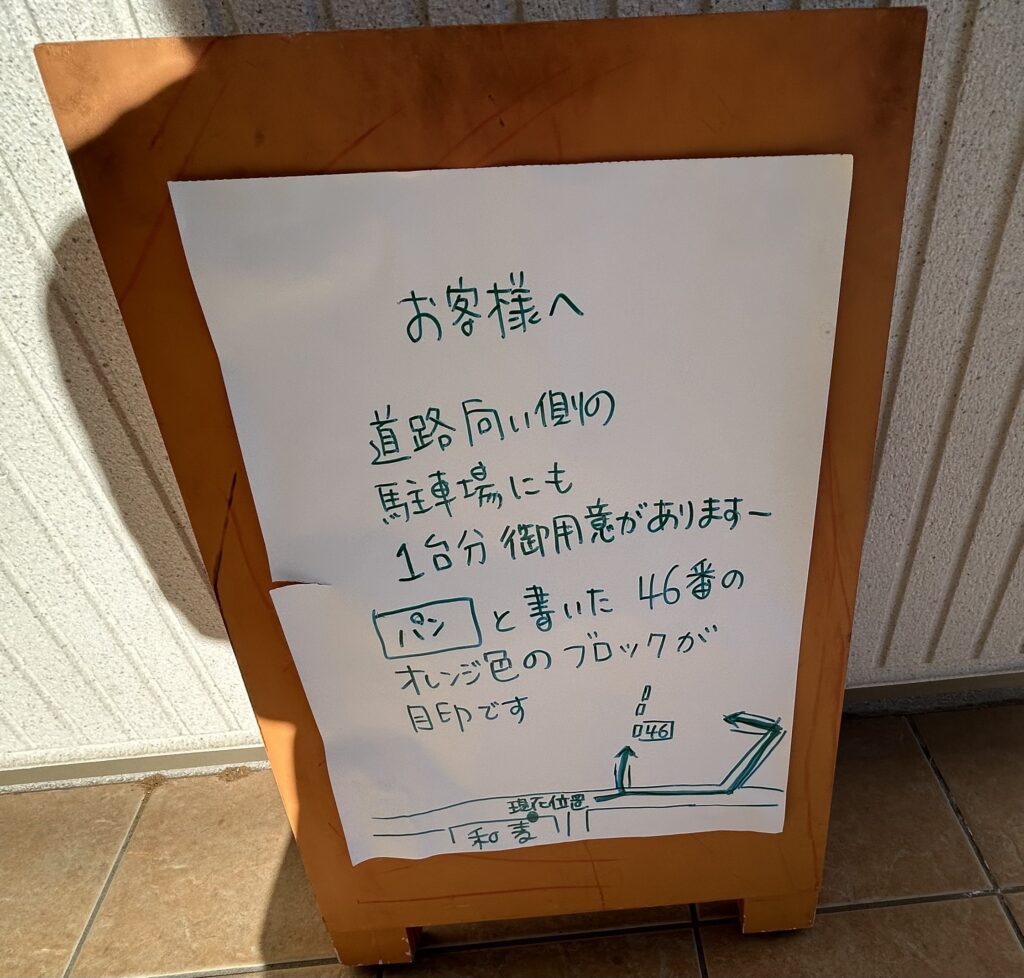 お客様へ
道路向い側の
駐車場にも
1台分御用意があります～
パンと書いた46番の
オレンジ色のブロックが
目印です
46
現在位置
和麦